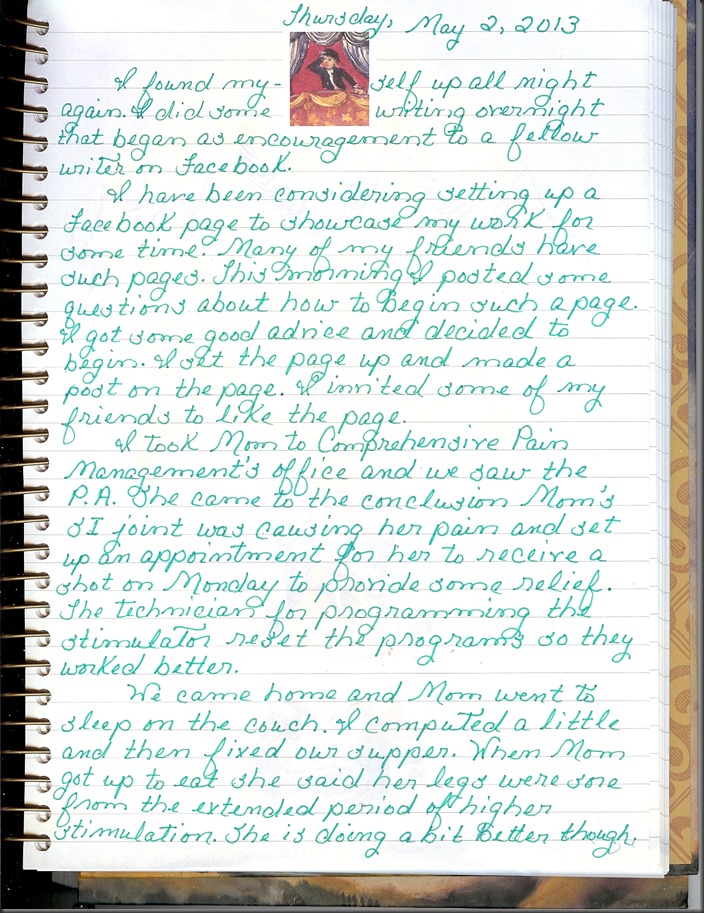 Thursday, May 2, 2013
I found my- self up all night
again. I did some writing overnight
that began as encouragement to a fellow
writer on Facebook.
I have been considering setting up a
Facebook page to showcase my work for
some time. Many of my friends have
such pages. This morning I posted some
questions about how to begin such a page.
I got some good advice and decided to
begin. I set the page up and made a
post on the page. I invited some of my
friends to like the page.
I took Mom to Comprehensive Pain
Management's office and we saw the
P.A. She came to the conclusion Mom's
SI joint was causing her pain and set
up an appointment for her to receive a
shot on Monday to provide some relief.
The technician for programming the
stimulator reset the programs so they
worked better.
We came home and Mom went to
sleep on the couch. I computed a little
and then fixed our supper. When Mom
got up to eat she said her legs were sore
from the extended period of higher
stimulation. She is doing a bit better though.